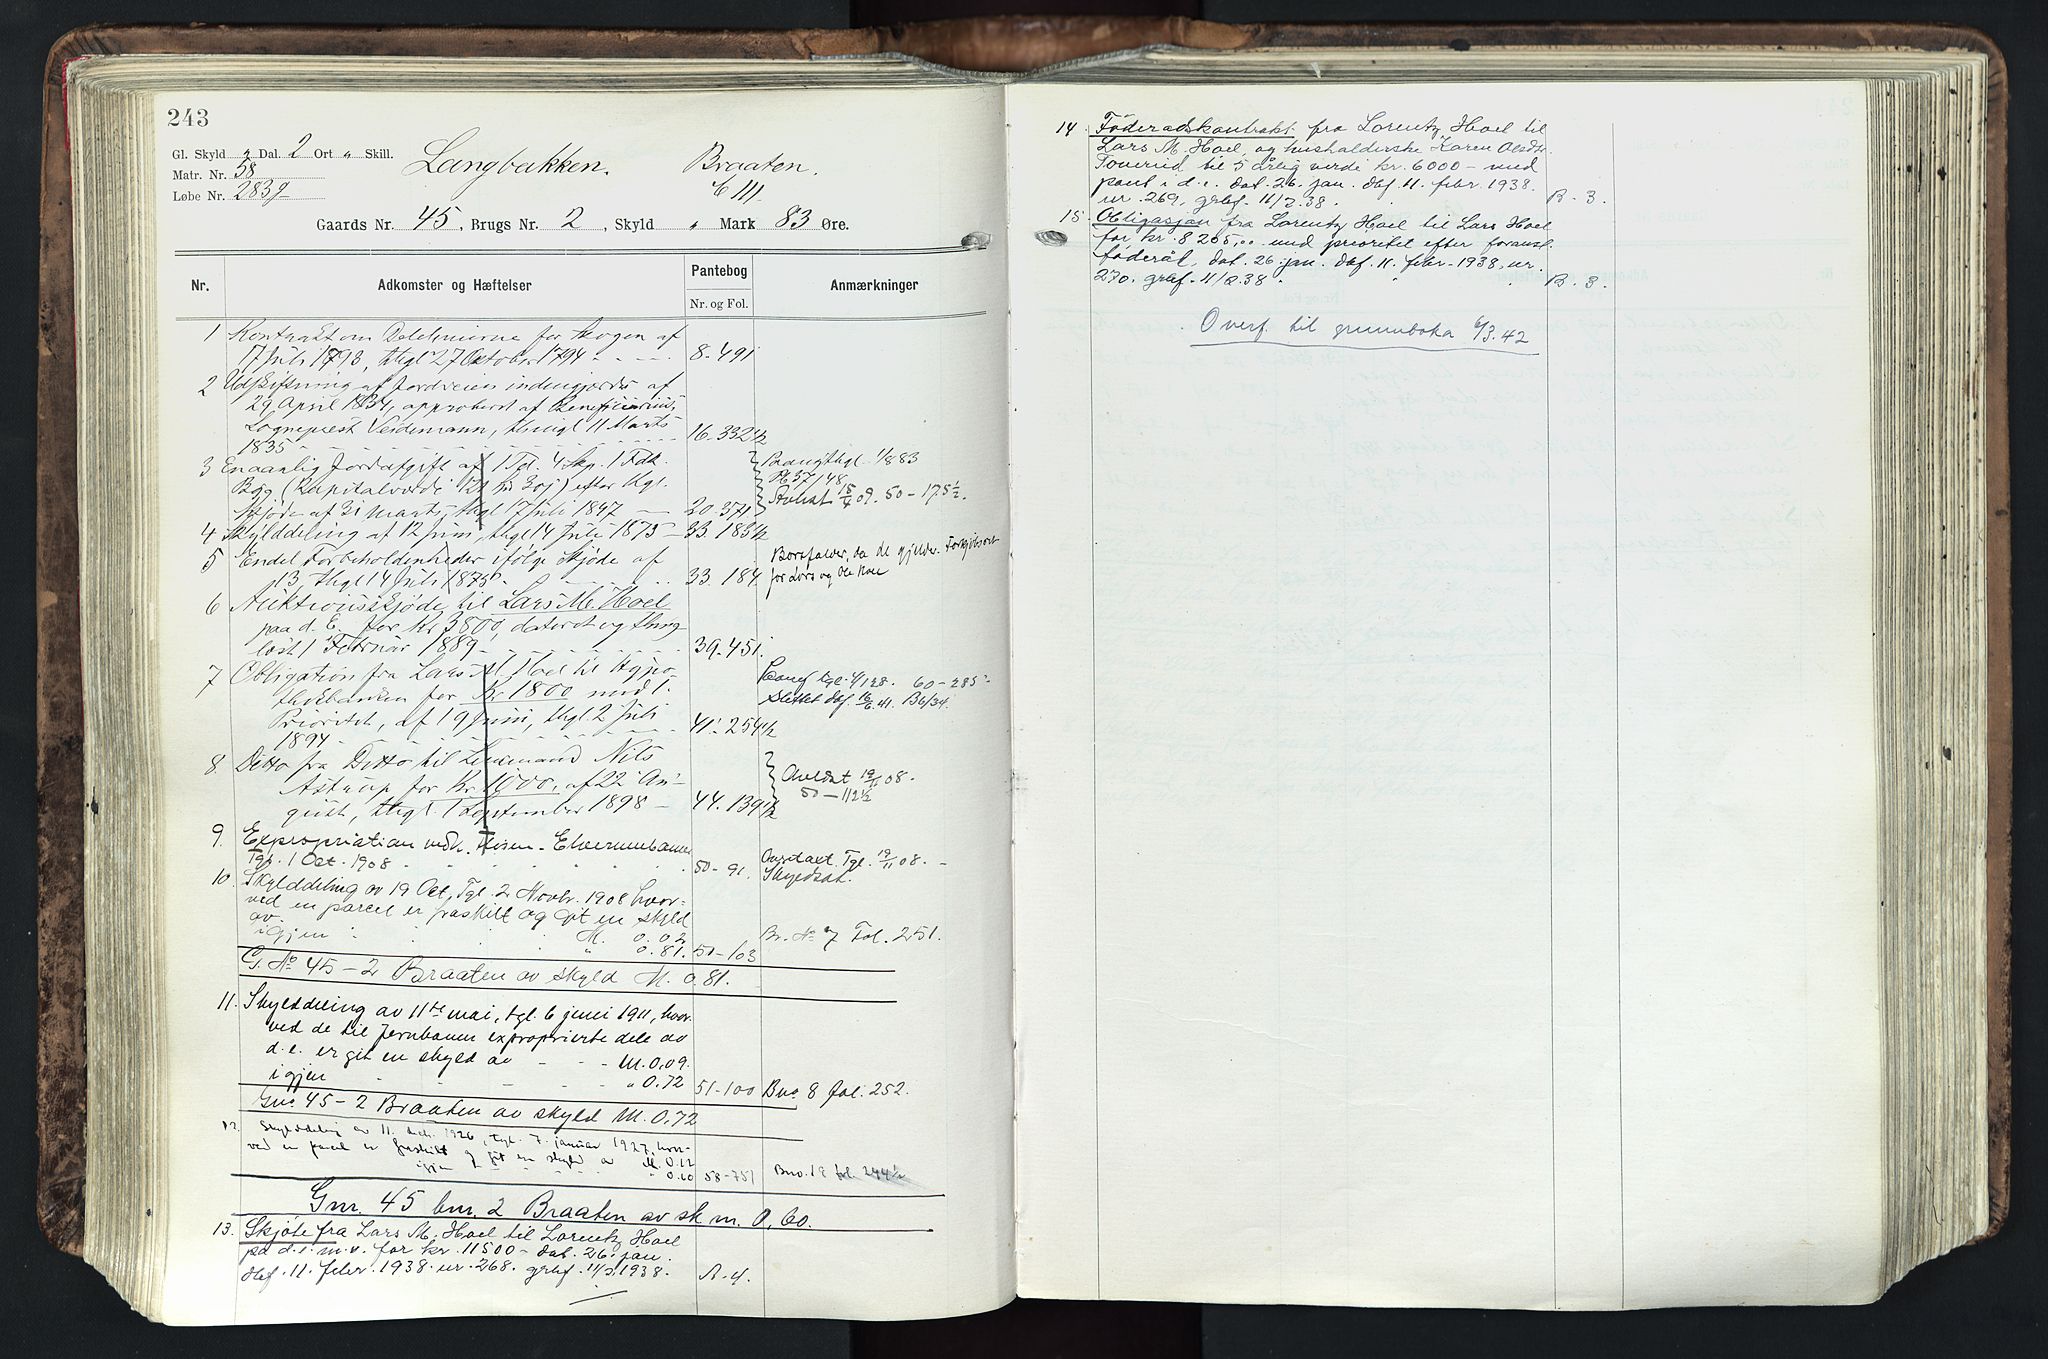 243
Gl. Skyld " Dal. 2 Ort " Skill. Langbakken. Braaten.
Matr. Nr. 58
Løbe Nr. 2839
Gaards Nr. 45, Brugs Nr. 2, Skyld " Mark 83 Øre.
Nr. Adkomster og Hæftelser Pantebog Anmærkninger
Nr. og Fol.
1 Kontrakt om Delelinierne for Skogen af
17 Juli 1793, thgl 27 Octobr 1794 8.491
2 Udskiftning af Jordveien indengjerds af
29 April 1834, approberet af Beneficiarius,
Sognepræst Veidemann, thingl 11 Marts
1835 16.332½
3 En aarlig Jordafgift af 1 Td. 4 Skp. 1 Fdk.
Byg (Kapitalværdi efter thgl.
Skjøde af 31 Marts, thgl 17 Juli 1847 20.371
4 Skylddeling af 12 Juni, thgl 14 Juli 1875 33.183½
5 Endel Forbeholdenheder ifølge Skjøde af
13, thgl 14 Juli 1875. 33.184 for Lars og Ole
6 Auktionsskjøde til Lars M. Hoel
paa d. E. for Kr 3800, dateret og thing-
læst 1 Februar 1889 39.451.
7 Obligation fra Lars M Hoel til Hypo-
thekbanken for Kr 1800 med 1.
Prioritet, af 19 Juni, thgl. 2 Juli
1894 41.254½
Slettet dbf. 16/6.41. B6/34.
8. Ditto fra Ditto til Nils
Astrup for Kr 1000, af 22 Au-
gust, thgl. 1 September 1898 44.139½
Avlæst 19/11 08.
50-112½
9. Expropriation vedk. Risen-Elverumbanen
Tgl. 1 Oct. 1908 50-91. Tgl. 19/11 08.
10. Skylddeling av 19 Oct, Tgl. 2 Novbr. 1908 hvor-
ved en parcel er fraskilt og git en skyld
av M. 0.02 Br. No 7 Fol. 251.
igjen " 0.81. 50-103
G. No 45-2 Braaten av skyld M. 0.81.
11. Skylddeling av 11te mai, tgl. 6 juni 1911, hvor-
ved de til Jernbanen exproprierte dele av
d.e. er git en skyld av M. 0,09.
igjen " 0.72 51-100 Bno 8 fol. 252.
Gno 45-2 Braaten av skyld M. 0,72
12. Skylddeling av 11. des. 1926, tgl. 7. januar 1927, hvor-
ved en parcel er fraskilt og git en skyld av M. 0.12
igjen " 0.60 58-751 Bno. 19 fol. 244½
Gnr. 45 bnr. 2 Braaten av sk m. 0,60.
13. Skjøte fra Lars M. Hoel til Lorentz Hoel
på d.e. m.v. for kr. 11500- dat. 26. jan.
dbf. 11. febr. 1938. nr. 268. grbf. 11/2.1938. A.4.
14 Føderådskontrakt fra Lorentz Hoel til
Lars M. Hoel og husholderske Karen Olsdtr.
til 5 årlig verdi kr. 6000- med
pant i d.e. dat. 26. jan. dbf. 11. febr. 1938.
nr. 269, grbf. 11/2.38. B.3.
15. Obligasjon fra Lorentz Hoel til Lars Hoel
for kr. 8205,00 med prioritet efter foranst.
føderåt, dat. 26. jan. dbf. 11. febr. 1938, nr.
270. grbf. 11/2.38. B.3.
Overf. til grunnboka 6/3.42